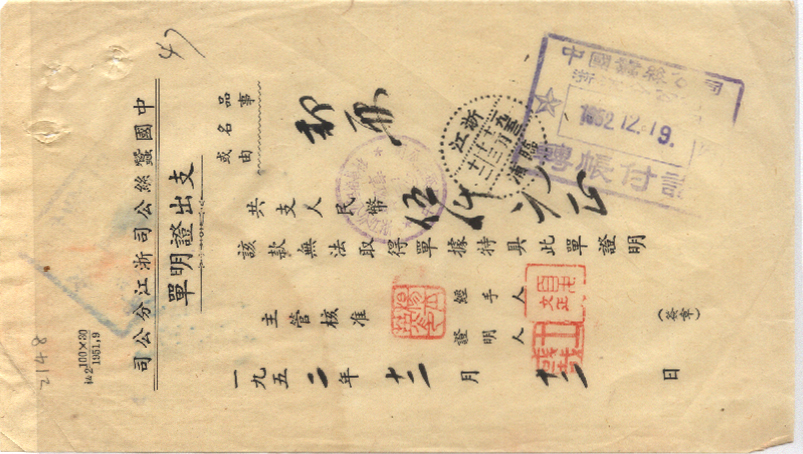 47
中國蠶絲公司浙江分公司
支出證明單
2148
私2 100×30
1951,9
品名
事由
或
共支人民幣伍仟元正
該款無法取得單據特具此單證明
主管核准
經手人
證明人
(簽章)
一九五二年十二月十二日
浙江
中國蠶絲公司
1952.12.19.
轉帳付訖